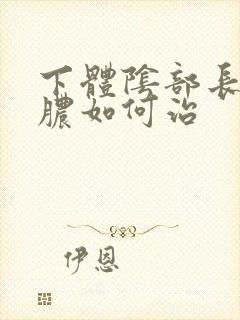 下體陰部長
膿如何治
伊恩